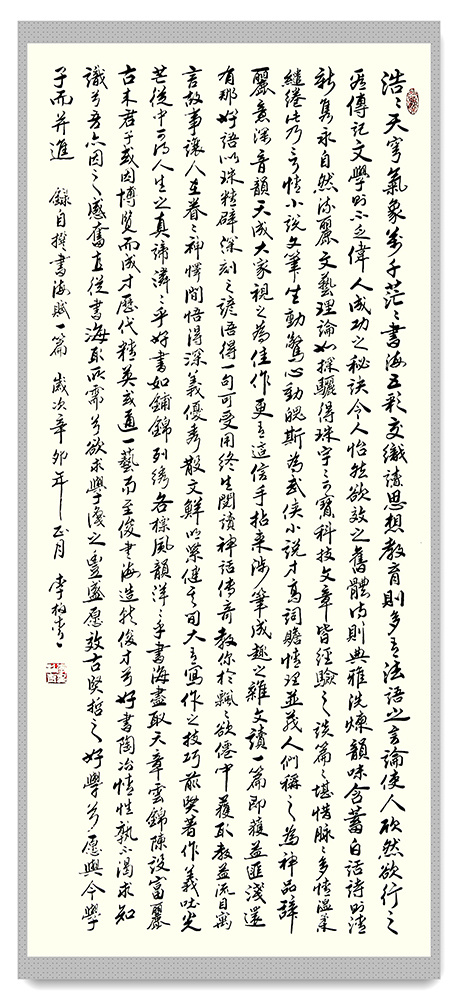 浩〻天穹氣象万千茫〻書海五彩交織讀思想教育則多有法語之言論使人欣然欲行之
傳記文學則不乏偉人成功之秘訣令人怡然欲效之舊體詩則典雅洗煉韻味含蓄白話詩則清
新隽永自然流麗文藝理論如探驪得珠字〻寶科技文章皆經驗之談篇〻堪惜脉〻多情溫柔
繾綣此乃言情小說文筆生動驚心動魄斯為武俠小說才高詞贍情理並茂人们稱之為神品辭
麗意深音韻天成大家視之為佳作更有這信手拈来涉筆成趣之雜文讀一篇即獲益匪淺還
有那妙語如珠精辟深刻之諺語得一句可受用終生閱讀神話傳奇教你於飄〻欲僊中獲取教益流目寓
言故事讓人在眷〻神愕間悟得深義優秀散文鮮明緊健句大有寫作之技巧前賢著作義吐光
芒從中可為人生之真諦潾〻乎好書如鋪錦列綉各樣風韻洋〻乎書海盡取天章雲錦陳設富麗
古来君子或因博覽而成才歷代精英或通一藝而至俊書海造就俊才兮好書陶冶情性孰不渴求知
識兮吾亦因之感奮直從書海取所需兮欲求學優之豐盛愿效古賢哲之好學兮愿與今學
子而并進 錄自撰書海賦一篇 歲次辛卯年正月 李